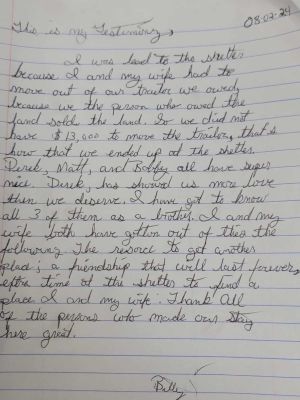 08-02-24
This is my Testimony,
I was lead to the shelter
because I and my wife had to
move out of our trailer we owed,
because we the person who owed the
land sold the land. So we did not
have $13,000 to move the trailer, that's
how that we ended up at the shelter.
Derek, Matt, and Bobby all have super
nice. Derek, has showed us more love
then we deserve. I have got to know
all 3 of them as a brother. I and my
wife both have gotten out of this the
following The resorc to get another
place; a friendship that will last forever,
time at the shelter to find a
place I and my wife. Thank All
of the persons who made our Stay
here great.
Billy